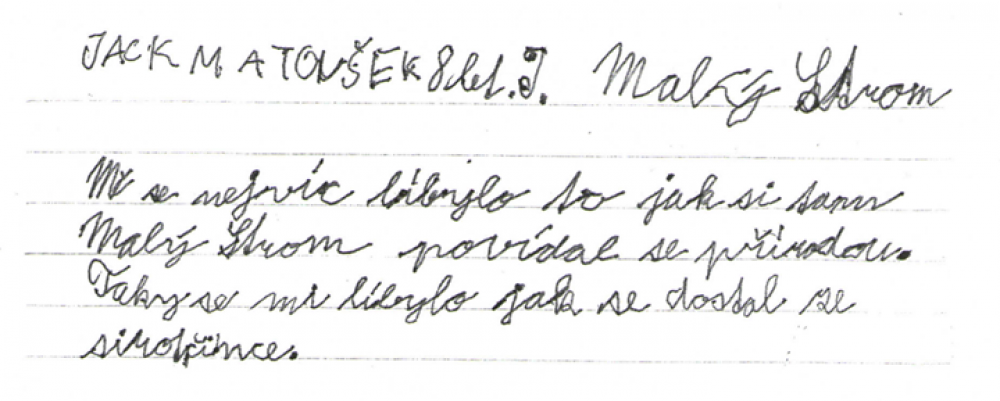 JACK MATOUŠEK 8 let. J. Malý Strom
Mě se nejvíc líbylo to jak si tam
Malý Strom povídal se přírodou.
Taky se mi líbylo jak se dostal ze
sirotčince.